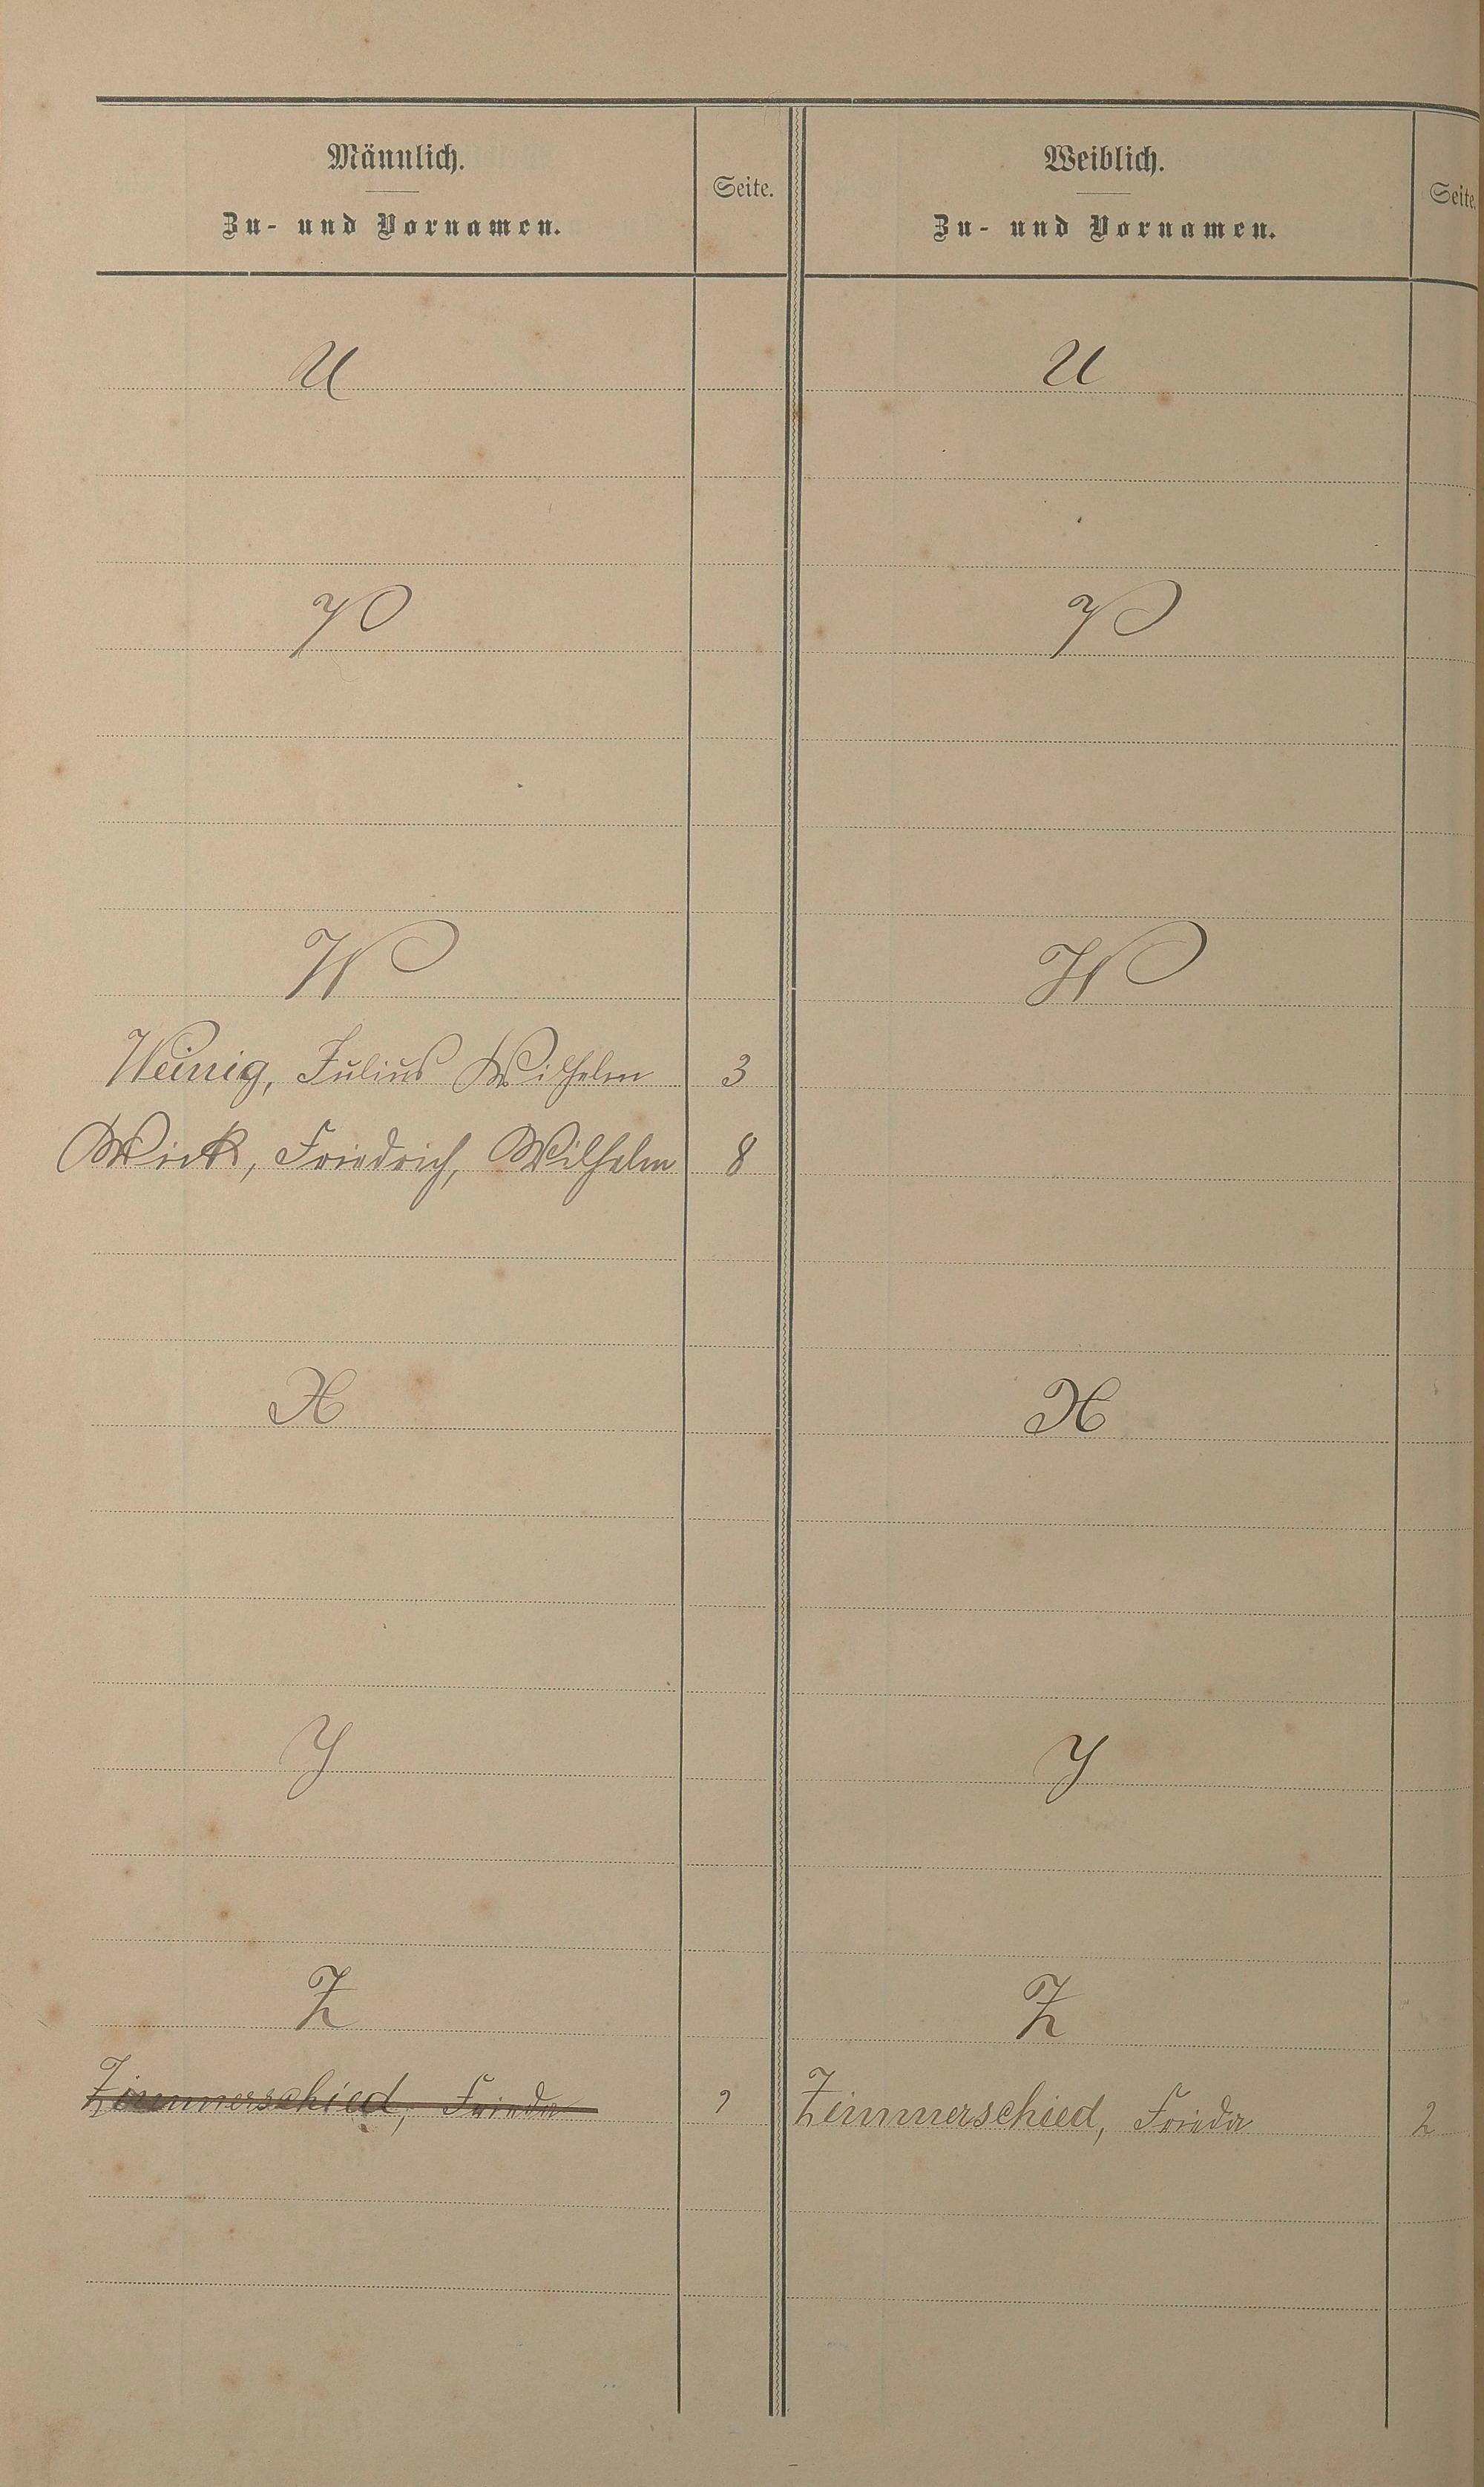 Männlich.
Zu- und Vornamen.
Seite.
Weiblich.
Zu- und Vornamen.
Seite.
U
U
V
V
W
W
Weinig, Julius Wilhelm 3
Wick, Friedrich, Wilhelm 8
X
X
Y
Y
Z
Z
Zimmerschied, Frieda
Zimmerschied, Frieda 2